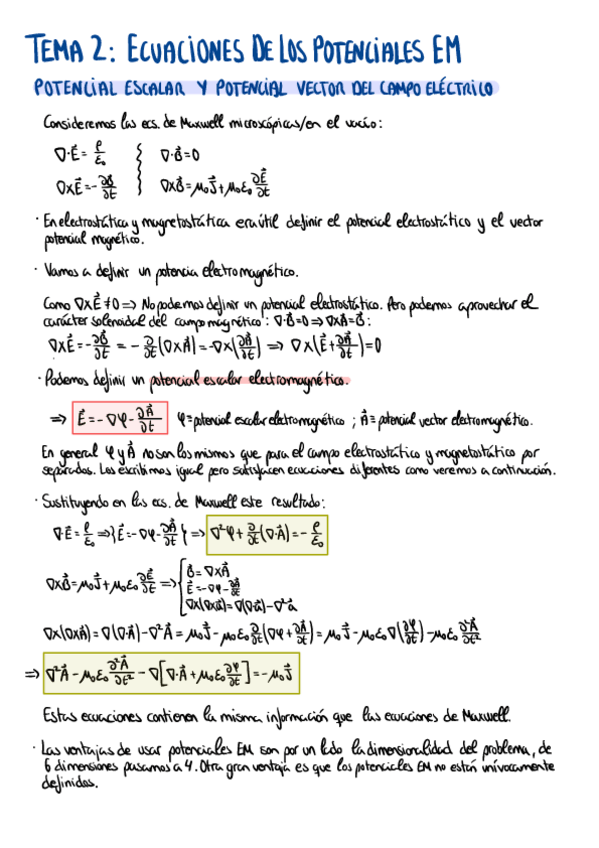 TEMA 2: ECUACIONES DE LOS POTENCIALES EM
POTENCIAL ESCALAR Y POTENCIAL VECTOR DEL CAMPO ELÉCTRICO
Consideremos las ecs. de Maxwell microscópicas/en el vacío:
∇·E⃗ = ρ/ε₀ } ∇·B⃗ = 0
∇×E⃗ = -∂B⃗/∂t } ∇×B⃗ = μ₀J⃗ + μ₀ε₀ ∂E⃗/∂t
· En electrostática y magnetostática era útil definir el potencial electrostático y el vector
potencial magnético.
· Vamos a definir un potencia electromagnético.
Como ∇×E⃗ ≠ 0 => No podemos definir un potencial electrostático. Pero podemos aprovechar el
carácter solenoidal del campo magnético: ∇·B⃗ = 0 => ∇×A⃗ = B⃗:
∇×E⃗ = -∂B⃗/∂t = -∂/∂t(∇×A⃗) = -∇×(∂A⃗/∂t) => ∇×(E⃗ + ∂A⃗/∂t) = 0
· Podemos definir un potencial escalar electromagnético.
=> E⃗ = -∇φ - ∂A⃗/∂t φ = potencial escalar electromagnético ; A⃗ = potencial vector electromagnético.
En general φ y A⃗ no son los mismos que para el campo electrostático y magnetostático por
separados. Los escribimos igual pero satisfacen ecuaciones diferentes como veremos a continuación.
· Sustituyendo en las ecs. de Maxwell este resultado:
∇·E⃗ = ρ/ε₀ => {E⃗ = -∇φ - ∂A⃗/∂t} => ∇²φ + ∂/∂t(∇·A⃗) = -ρ/ε₀
∇×B⃗ = μ₀J⃗ + μ₀ε₀ ∂E⃗/∂t => { B⃗ = ∇×A⃗
E⃗ = -∇φ - ∂A⃗/∂t
∇×(∇×a⃗) = ∇(∇·a⃗) - ∇²a⃗
∇×(∇×A⃗) = ∇(∇·A⃗) - ∇²A⃗ = μ₀J⃗ - μ₀ε₀ ∂/∂t(∇φ + ∂A⃗/∂t) = μ₀J⃗ - μ₀ε₀∇(∂φ/∂t) - μ₀ε₀ ∂²A⃗/∂t²
=> ∇²A⃗ - μ₀ε₀ ∂²A⃗/∂t² - ∇[∇·A⃗ + μ₀ε₀ ∂φ/∂t] = -μ₀J⃗
Estas ecuaciones contienen la misma información que las ecuaciones de Maxwell.
· Las ventajas de usar potenciales EM son por un lado la dimensionalidad del problema, de
6 dimensiones pasamos a 4. Otra gran ventaja es que los potenciales EM no están unívocamente
definidos.